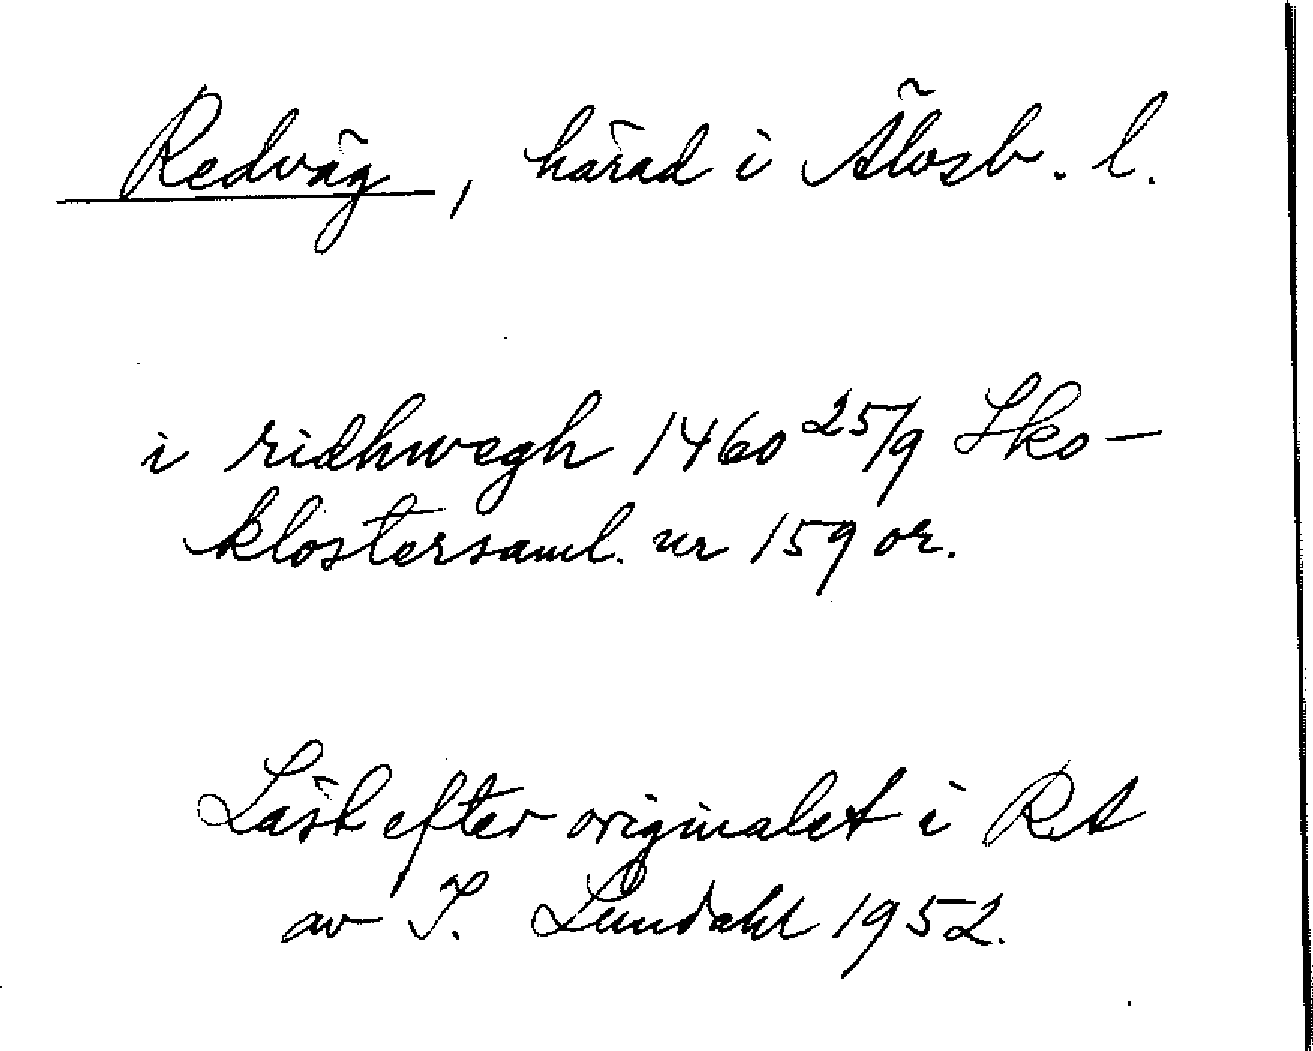 Redväg, härad i Älvsb. l.
i ridhwegh 1460 25/9 Sko-
klostersaml. nr 159 or.
Läst efter originalet i RA
av I. Lundahl 1952.